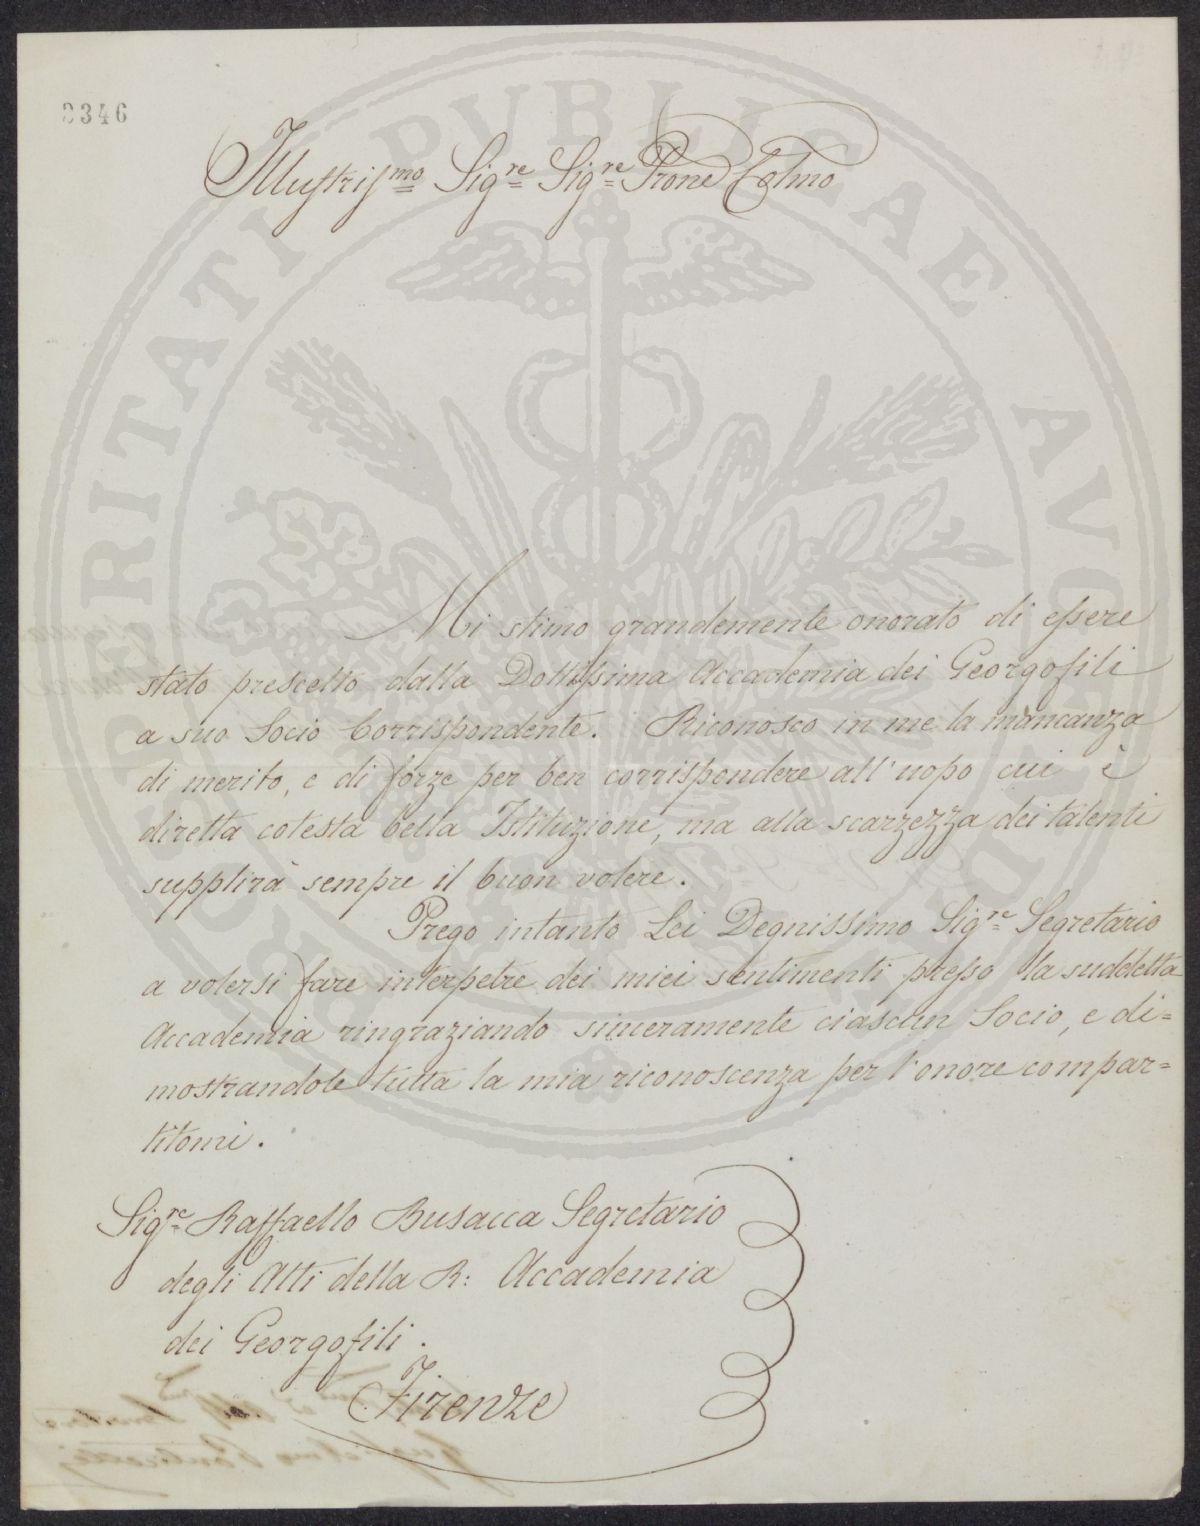 2346
Illustrismo Sigre Sigre Prone Colmo
Mi stimo grandemente onorato di essere
stato prescelto dalla Dottissima Accademia dei Georgofili
a suo Socio Corrispondente. Riconosco in me la mancanza
di merito, e di forze per ben corrispondere all'uopo cui è
diretta cotesta bella Istituzione, ma alla scarzezza dei talenti
supplirà sempre il buon volere.
Prego intanto Lei Degnissimo Sigre Segretario
a volersi fare interpetre dei miei sentimenti presso la suddetta
Accademia ringraziando sinceramente ciascun Socio, e di=
mostrandole tutta la mia riconoscenza per l'onore compar=
titomi.
Sigre Raffaello Busacca Segretario
degli Atti della R: Accademia
dei Georgofili.
Firenze
PROSPERITATI PVBLICAE AVGENDAE